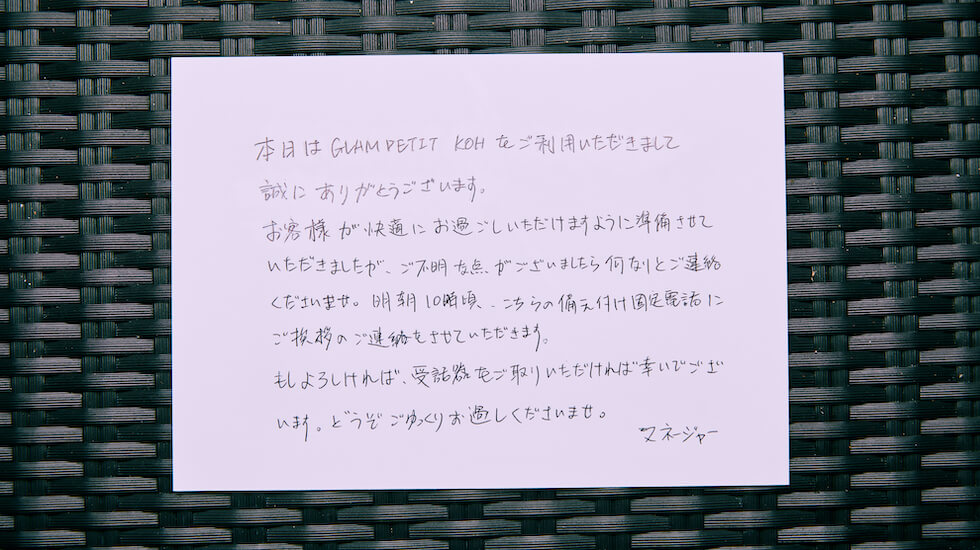 本日は GLAMPETIT KOH をご利用いただきまして
誠に ありがとうございます。
お客様が快適にお過ごしいただけますように準備させて
いただきましたが、ご不明な点がございましたら何なりとご連絡
くださいませ。明朝10時頃、こちらの備え付け固定電話に
ご挨拶のご連絡をさせていただきます。
もしよろしければ、受話器をご取りいただければ幸いでござ
います。どうぞごゆっくりお過しくださいませ。
マネージャー